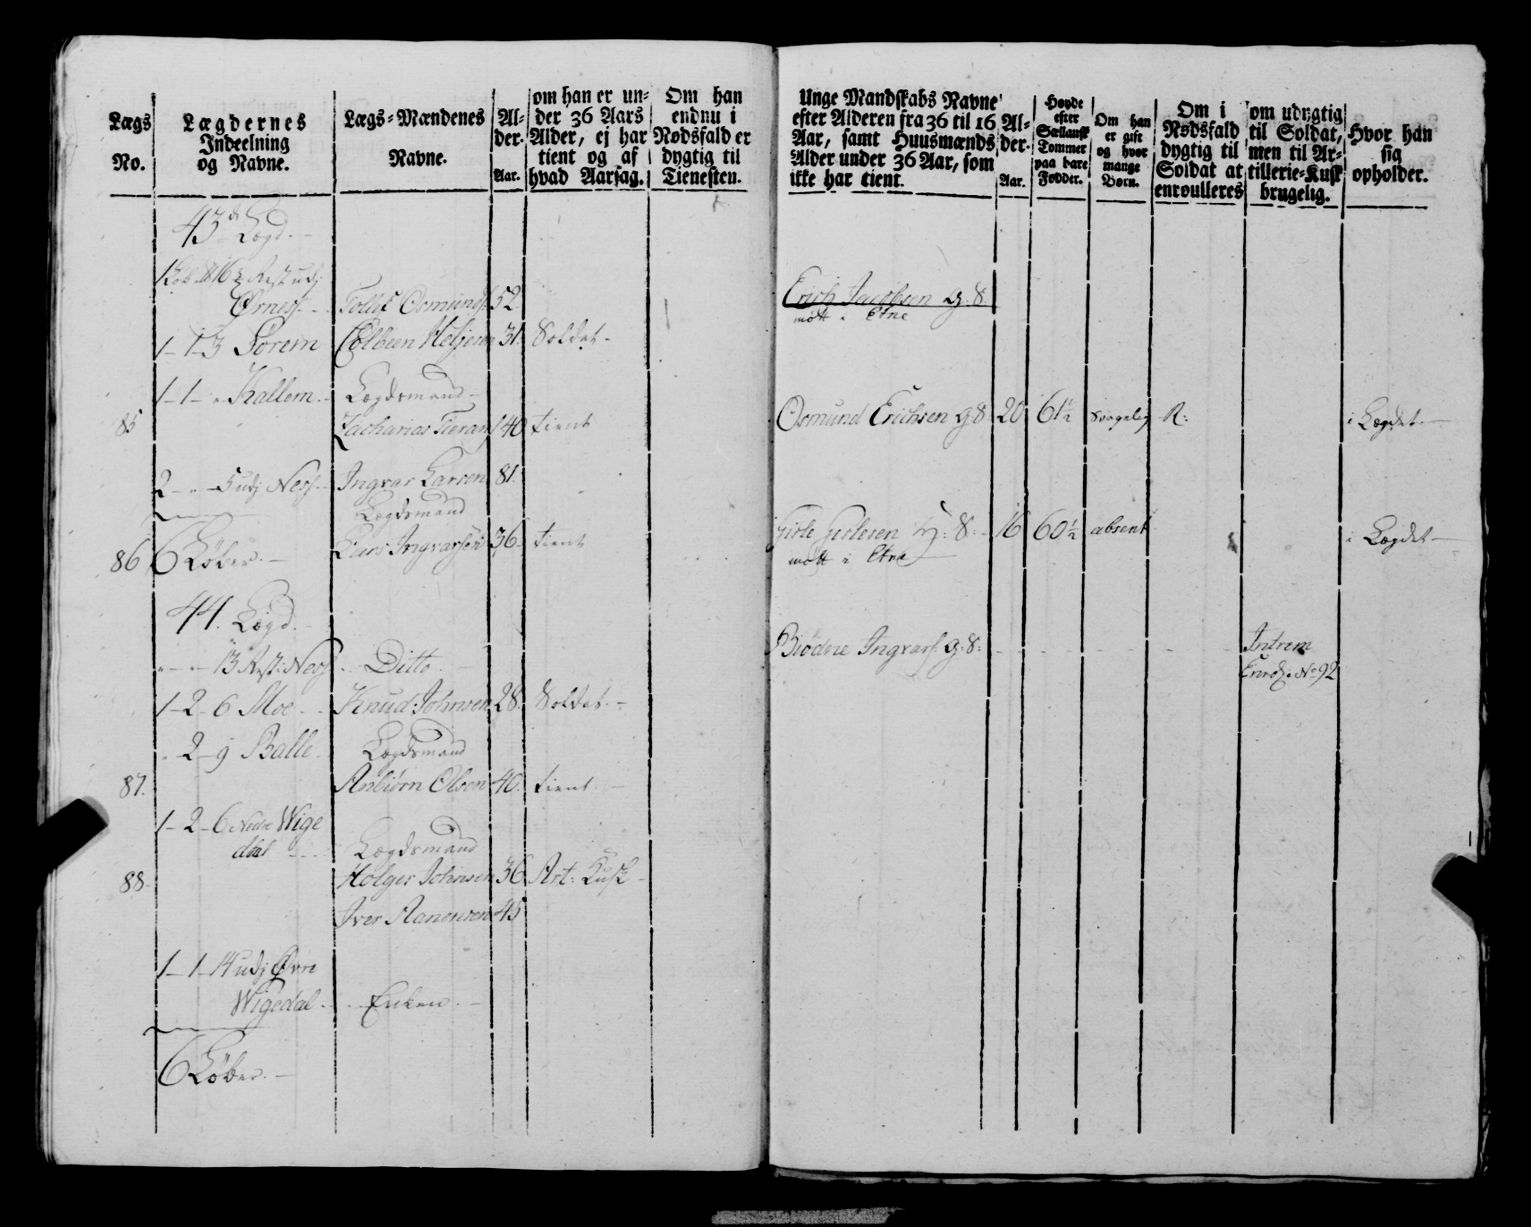 Lægs
No.
Lægdernes
Indeelning
og Navne.
Lægs-Mændenes
Navne.
Al-
der.
Aar.
om han er un-
der 36 Aars
Alder, ej har
tient og af
hvad Aarsag.
Om han
endnu i
Nødsfald er
dygtig til
Tienesten.
Unge Mandskabs Navne
efter Alderen fra 36 til 16
Aar, samt Huusmænds
Alder under 36 Aar, som
ikke har tient.
Al-
der.
Aar.
Høyde
efter
Siællansk
Tommer
paa bare
Fødder.
Om han
er gift
og hvor
mange
Børn.
Om i
Nødsfald
dygtig til
Soldat at
enroulleres
om udygtig
til Soldat,
men til Ar-
tillerie-Kusk
brugelig.
Hvor han
sig
opholder.
43 Lægd.
Rest udj
Ørness Osmunds. 52 Erich Jacobsen g. 8
mött i Etne
1-1-3 Sorem Colbeen Helgesen 31. Soldat
1-1-" Hallem Lægdsmand
85 Zacharias 40 tient Osmund Erichsen g 8 20 61½ R: i Lægdet
2-"-5 udj Ness Ingvar Larsen 81.
Lægdsmand
86 6 Løber. Lars Ingvarsen 36 tient Gisle Gislesen g: 8. 16 60½ absent i Lægdet
mött i Etne
44. Lægd.
"-"-13 Rest: Ness Ditto Biödne Ingvars. g. 8. Interm
No 92
1-2-6 Moe Knud Johnsen 28. Soldat.
"2-9 Balle Lægdsmand
87. Anbiörn Olsen 40. tient.
1-2-6 Nedre Wige
dal Lægdsmand
88 Holger Johnsen 36 Art: Kusk
Iver Aanensen 45
1-1-14 udj Øvre
Wigedal Enken
6 Løber.